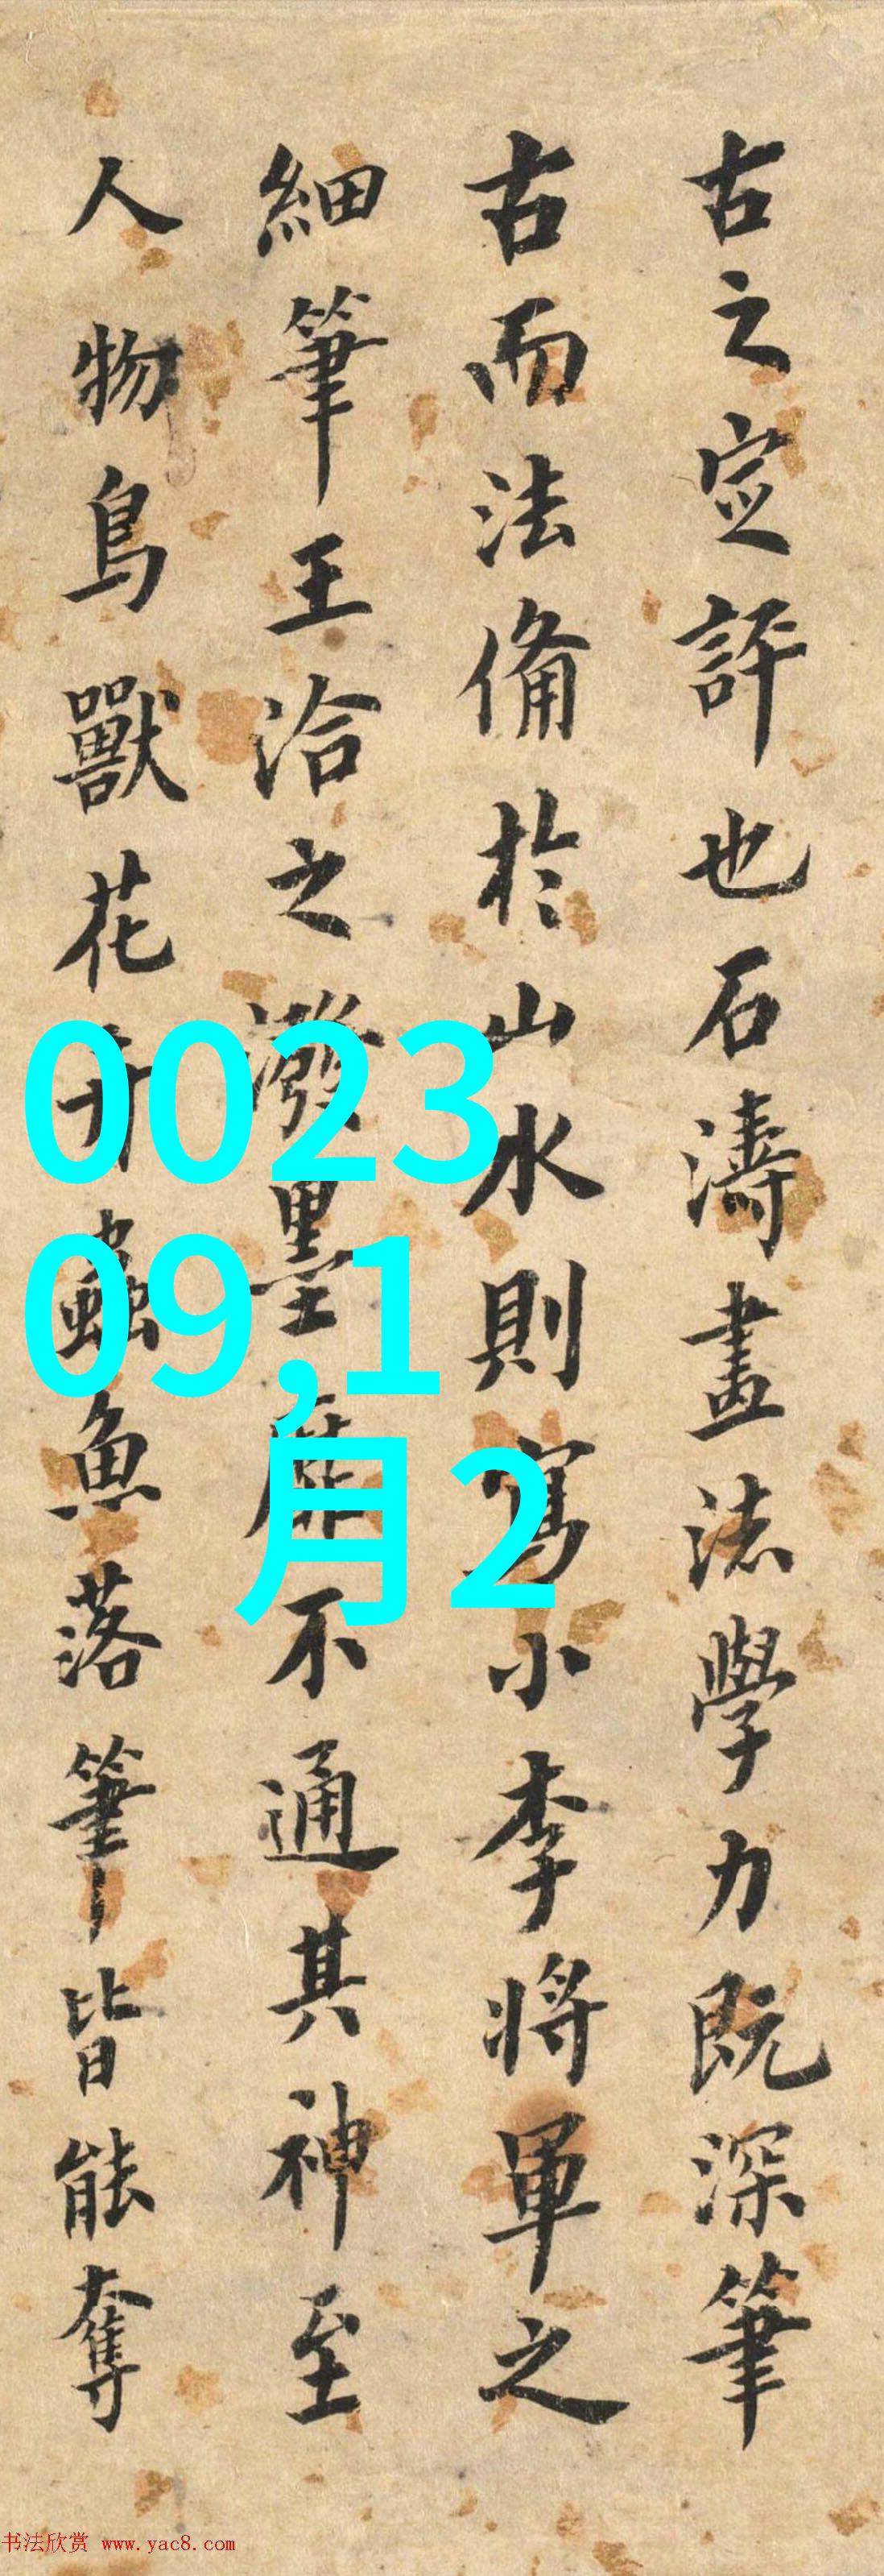 古之定評也石濤畫法學力既深筆
古而法備於山水則寫小李將軍之
細筆王洽之潑墨靡不通其神至
人物鳥獸花卉蟲魚落筆皆能奪
0023
09,1
月2
书法欣赏 www.yac8.com